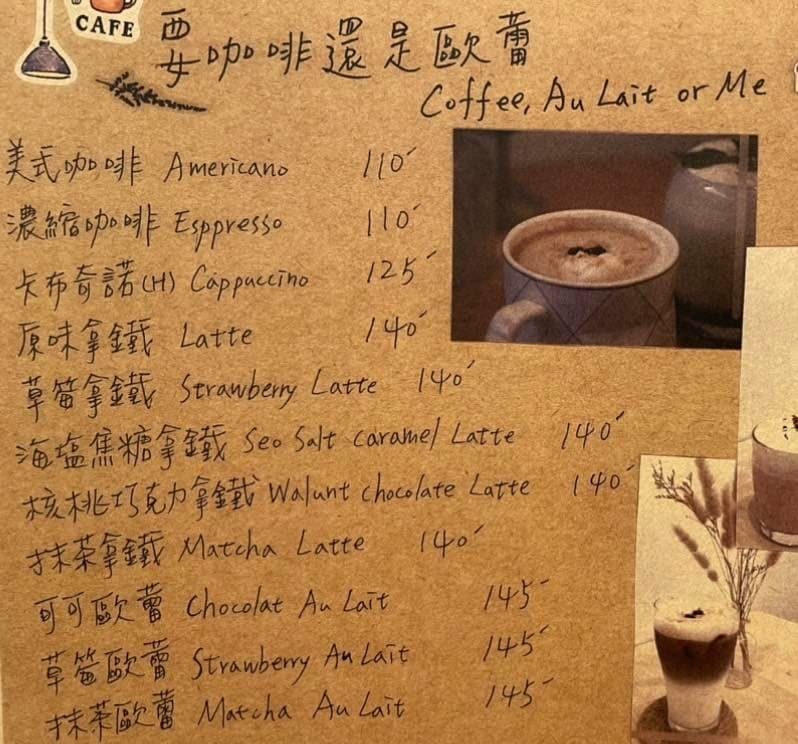 CAFE
要咖啡還是歐蕾
Coffee, Au Lait or Me
美式咖啡 Americano 110
濃縮咖啡 Esppresso 110
卡布奇諾(H) Cappuccino 125
原味拿鐵 Latte 140
草莓拿鐵 Strawberry Latte 140
海塩焦糖拿鐵 Seo Salt caramel Latte 140
核桃巧克力拿鐵 Walunt chocolate Latte 140
抹茶拿鐵 Matcha Latte 140
可可歐蕾 Chocolat Au Lait 145
草莓歐蕾 Strawberry Au Lait 145
抹茶歐蕾 Matcha Au Lait 145